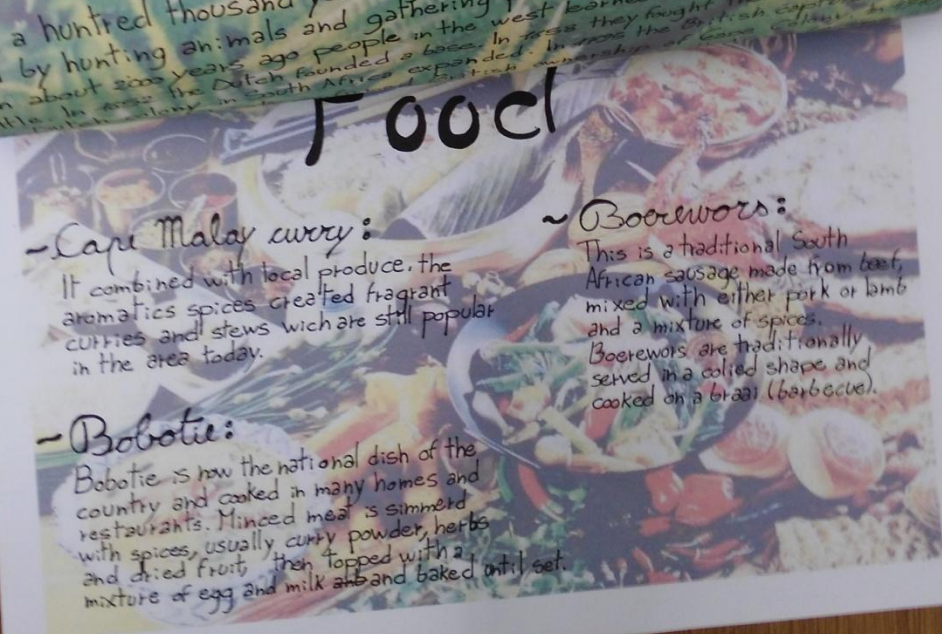 a huntred thousand
by hunting animals and gathering
about 2000 years ago people in the west
the Dutch founded a base. In they fought the British
South Africa expanded. In
Food
~ Cape Malay curry:
It combined with local produce. the
aromatics spices created fragrant
curries and stews wich are still popular
in the area today.
~ Bobotie:
Bobotie is now the national dish of the
country and cooked in many homes and
restaurants. Minced meat is simmerd
with spices, usually curry powder, herbs
and dried fruit, then topped with a
mixture of egg and milk and baked until set.
~ Boerewors:
This is a traditional South
African sausage made from beef,
mixed with either pork or lamb
and a mixture of spices.
Boerewors are traditionally
served in a colied shape and
cooked on a braai (barbecue).